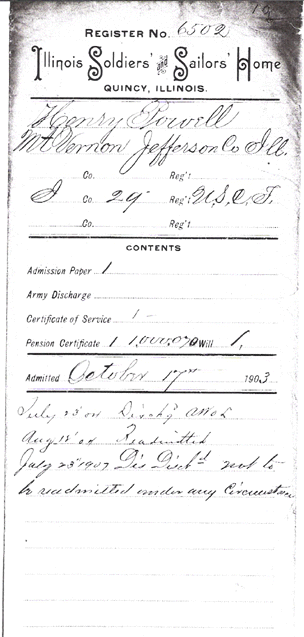 REGISTER No. 6502
Illinois Soldiers' and Sailors' Home
QUINCY, ILLINOIS.
Henry Powell
Mt Vernon Jefferson Co Ill.
Co. Reg't
I Co. 29" Reg't U.S.C.T.
Co. Reg't
CONTENTS
Admission Paper 1
Army Discharge
Certificate of Service 1
Pension Certificate 1 1,000,070 Will 1,
Admitted October 17" 1903
July 23" Disch'g
Aug Readmitted
July 23" 1907 Dis Disch'd not to
be readmitted under any Circumstance